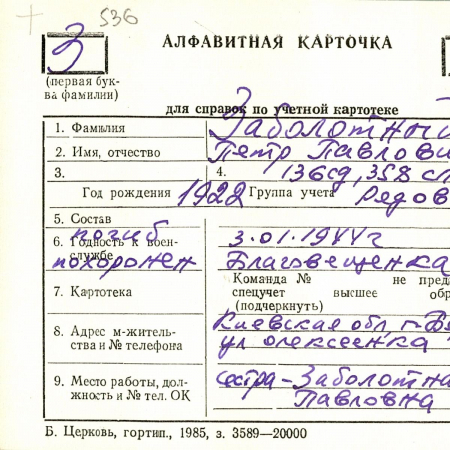 536
З
АЛФАВИТНАЯ КАРТОЧКА
(первая бук-
ва фамилии)
для справок по учетной картотеке
1. Фамилия Заболотный
2. Имя, отчество Петр Павлови
3. 4. 136сд, 358 сп
Год рождения 1922 Группа учета Рядов
5. Состав
погиб
6. Годность к воен- 3.01.1944г
службе
похоронен Благовещенка
Команда № не пред
7. Картотека спецучет высшее обр
(подчеркнуть)
8. Адрес м-житель- Киевская обл, г.
ства и № телефона ул Олексеенка
9. Место работы, дол- сестра - Заболотна
жность и № тел. ОК Павловна
Б. Церковь, гортип., 1985, з. 3589—20000